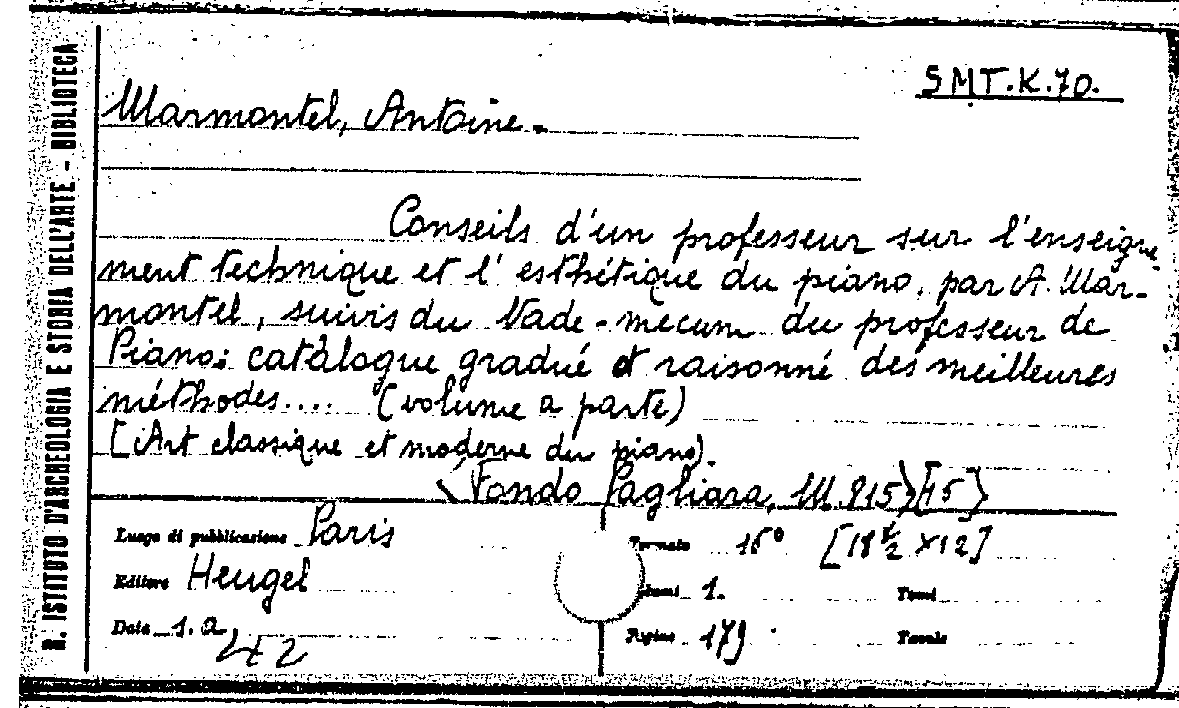 R. ISTITUTO D'ARCHEOLOGIA E STORIA DELL'ARTE - BIBLIOTECA
SMT.K.70.
Marmontel, Antoine.
Conseils d'un professeur sur l'enseigne-
ment technique et l'esthétique du piano, par A. Mar-
montel, suivis du Vade-mecum du professeur de
Piano: catalogue gradué et raisonné des meilleures
méthodes.... (volume a parte)
[Art classique et moderne du piano).
Fondo Pagliara, M. 815 [15]
Luogo di pubblicazione Paris
Formato 16° [18½ x 12]
Editore Heugel
Volumi 1. Tomi
Data s.a.
Pagine 179 Tavole